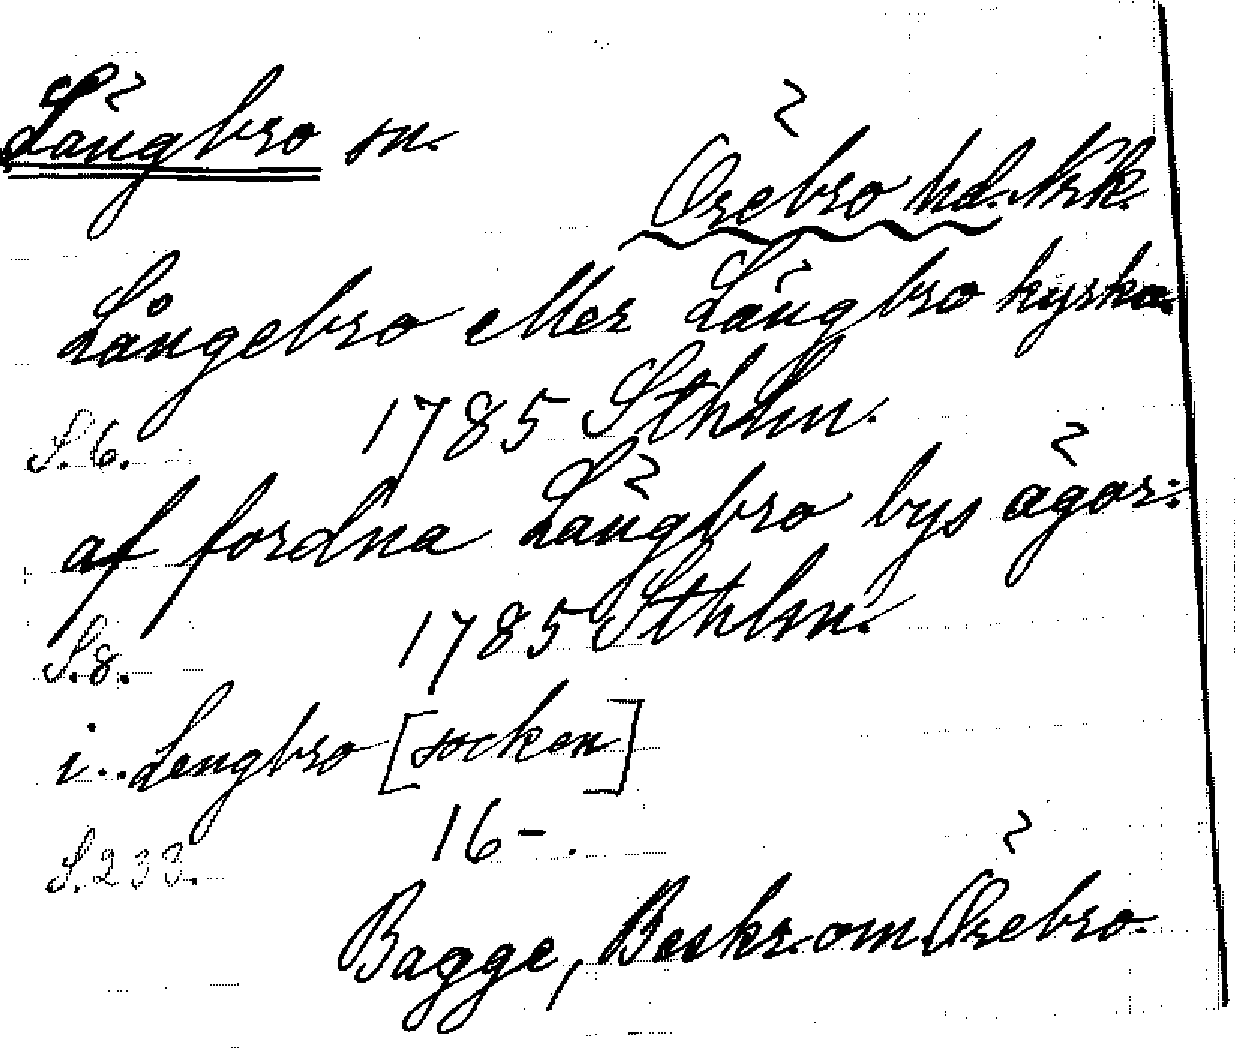 Längbro sn.
Örebro hd. Nrk.
Långebro eller Längbro kyrka
S.6. 1785 Sthlm.
af fordna Längbro bys ägor:
S.8. 1785 Sthlm.
i.. Lengbro [socken]
S.233. 16-.
Bagge, Beskr. om Örebro.